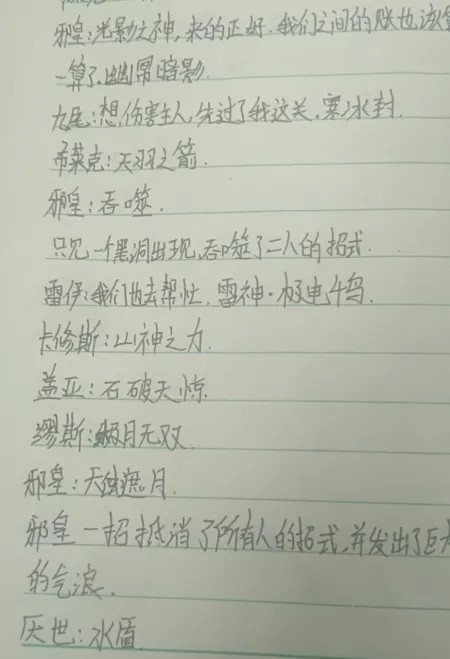 邪皇:光影之神,来的正好.我们之间的账也该
一算了.幽冥暗影.
九尾:想伤害主人,先过了我这关.寒冰封.
布莱克:天羽之箭.
邪皇:吞噬.
只见一个黑洞出现,吞噬了二人的招式.
雷伊:我们也去帮忙.雷神·极电千鸟.
卡修斯:山神之力.
盖亚:石破天惊.
缪斯:明月无双.
邪皇:天蚀遮月.
邪皇一招抵消了所有人的招式,并发出了巨大
的气浪.
厌世:水盾.